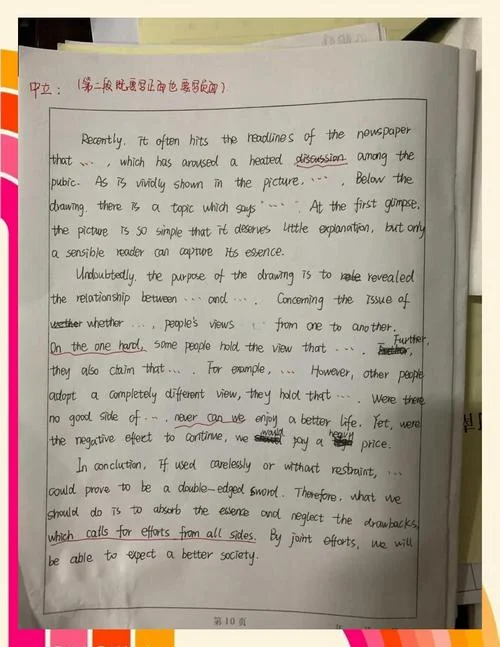 中立：（第二段既要写正面也要写反面）
Recently, it often hits the headlines of the newspaper
that ..., which has aroused a heated discussion among the
pubic. As is vividly shown in the picture, .... Below the
drawing, there is a topic which says "...". At the first glimpse,
the picture is so simple that it deserves little explanation, but only
a sensible reader can capture its essence.
Undoubtedly, the purpose of the drawing is to revealed
the relationship between ... and .... Concerning the issue of
whether ..., people's views from one to another.
On the one hand, some people hold the view that .... Further,
they also claim that .... For example, ... However, other people
adopt a completely different view, they hold that .... Were there
no good side of ..., never can we enjoy a better life. Yet, were
the negative effect to continue, we would pay a heavy price.
In conclution, if used carelessly or without restraint, ...
could prove to be a double-edged sword. Therefore, what we
should do is to absorb the essence and neglect the drawbacks,
which calls for efforts from all sides. By joint efforts, we will
be able to expect a better society.
第 10 页